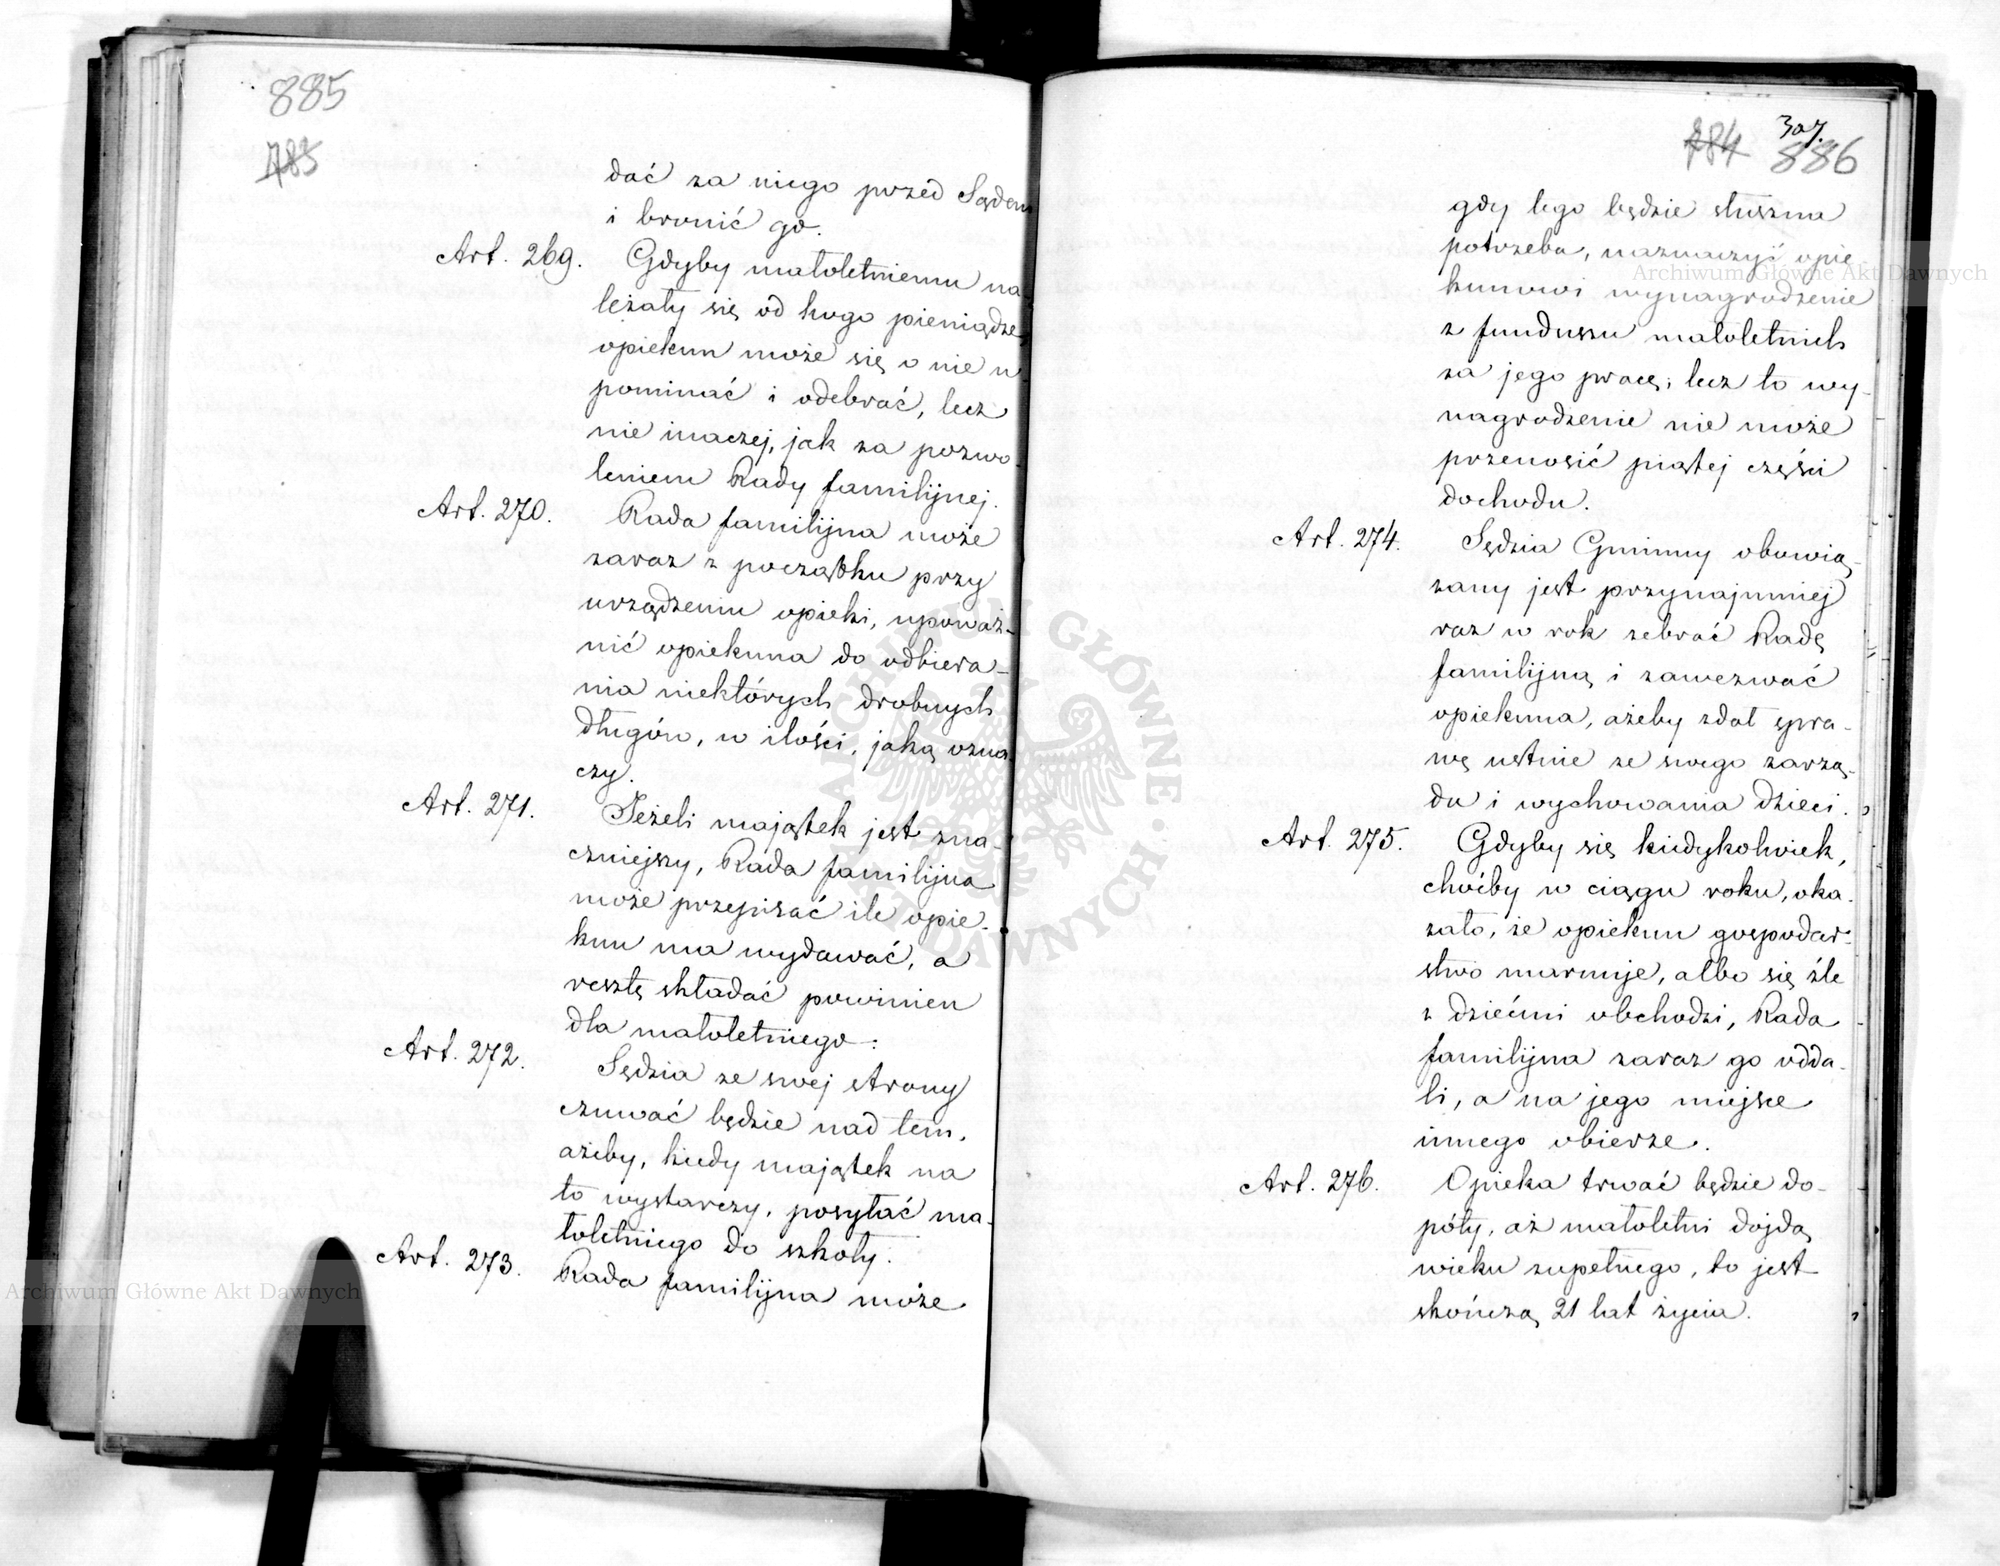 885
783
dać za niego przed Sądem
i bronić go.
Art. 269. Gdyby małoletniemu na
leżały się od kogo pieniądze,
opiekun może się o nie u
pominać i odebrać, lecz
nie inaczej, jak za pozwo
leniem Rady familijnej.
Art. 270. Rada familijna może
zaraz z początku przy
urządzeniu opieki, upoważ-
nić opiekuna do odbiera-
nia niektórych drobnych
długów, w ilości, jaką ozna
czy.
Art. 271. Jeżeli majątek jest zna-
czniejszy, Rada familijna
może przepisać ile opie-
kun ma wydawać, a
resztę składać powinien
dla małoletniego.
Art. 272. Sędzia ze swej strony
czuwać będzie nad tem,
ażeby, kiedy majątek na
to wystarczy, posyłać ma-
łoletniego do szkoły.
Art. 273. Rada familijna może
784 307. 886
gdy tego będzie słuszna
potrzeba, naznaczyć opie-
kunowi wynagrodzenie
z funduszu małoletnich
za jego pracę; lecz to wy-
nagrodzenie nie może
przenosić piątej części
dochodu.
Art. 274. Sędzia Gminny obowią-
zany jest przynajmniej
raz w rok zebrać Radę
familijną i zawezwać
opiekuna, ażeby zdał spra-
wę ustnie ze swego zarzą-
du i wychowania dzieci.
Art. 275. Gdyby się kiedykolwiek,
choćby w ciągu roku, oka-
zało, że opiekun gospodar-
stwo marnuje, albo się źle
z dziećmi obchodzi, Rada
familijna zaraz go odda-
li, a na jego miejsce
innego obierze.
Art. 276. Opieka trwać będzie do-
póty, aż małoletni dojdą
wieku zupełnego, to jest
skończą 21 lat życia.
ARCHIWUM GŁÓWNE AKT DAWNYCH
Archiwum Główne Akt Dawnych
Archiwum Główne Akt Dawnych